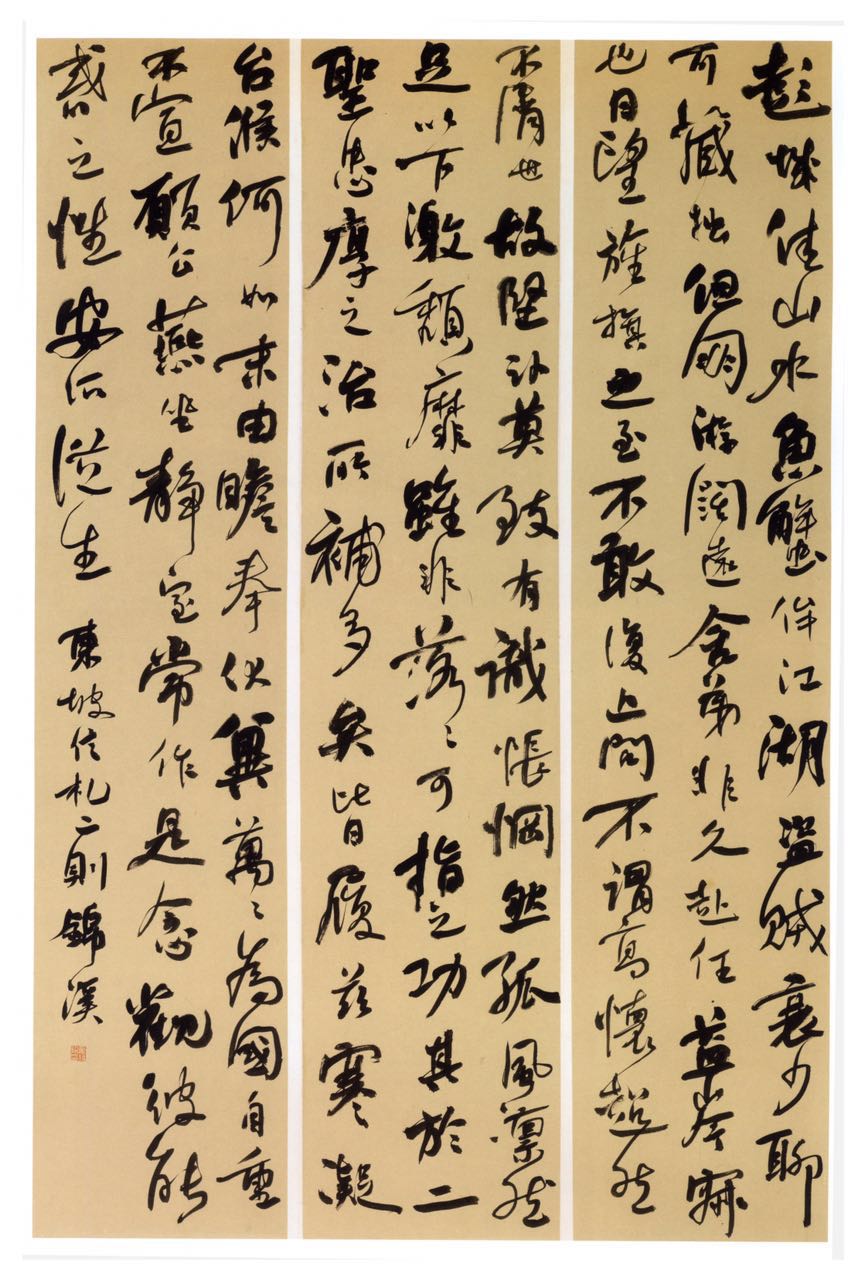 彭城佳山水魚蟹侔江湖盜賊衰少聊
可藏拙但朋游闊遠舍弟非久赴任益岑寂
也日望旌旗之至不敢復上問不謂高懷超然
不屑也故堅臥莫致有識悵惘然孤風凜然
足以下激頹靡雖非落〻可指之功其於二
聖忠厚之治所補多矣比日履茲寒凝
台候何如未由瞻奉伏冀萬〻為國自重
不宣願公燕坐靜室常作是念觀彼能
惑之性安所從生 東坡信札二則錦溪